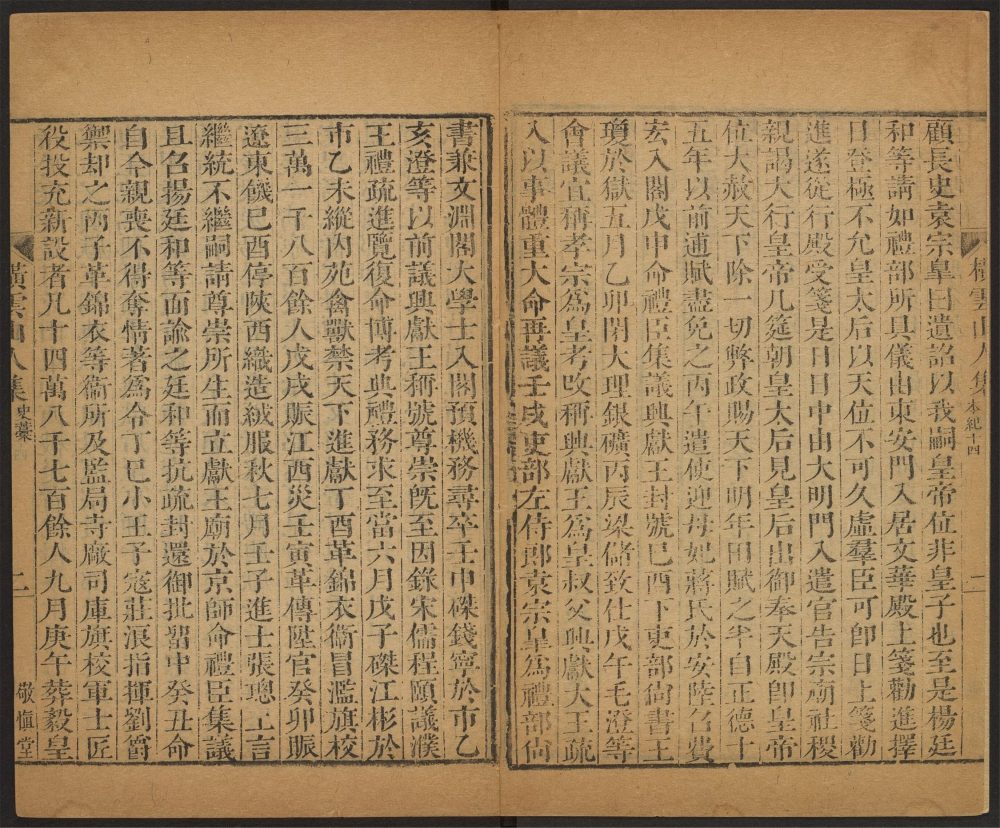 橫雲山人集 本紀十四 二
顧長史袁宗皐曰遺詔以我嗣皇帝位非皇子也至是楊廷
和等請如禮部所具儀由東安門入居文華殿上箋勸進擇
日登極不允皇太后以天位不可久虛羣臣可卽日上箋勸
進遂從行殿受箋是日日中由大明門入遣官告宗廟社稷
親謁大行皇帝几筵朝皇太后見皇后出御奉天殿卽皇帝
位大赦天下除一切弊政賜天下明年田賦之半自正德十
五年以前逋賦盡免之丙午遣使迎母妃蔣氏於安陸召費
宏入閣戊申命禮臣集議興獻王封號巳酉下吏部尙書王
瓊於獄五月乙卯閉大理銀礦丙辰梁儲致仕戊午毛澄等
會議宜稱孝宗爲皇考改稱興獻王爲皇叔父興獻大王疏
入以事體重大命再議壬戌吏部左侍郎袁宗皐爲禮部尙
書兼文淵閣大學士入閣預機務尋卒壬申磔錢寧於市乙
亥澄等以前議興獻王稱號尊崇旣至因錄宋儒程頤議濮
王禮疏進覽復命博考典禮務求至當六月戊子磔江彬於
市乙未縱內苑禽獸禁天下進獻丁酉革錦衣衞冒濫旗校
三萬一千八百餘人戊戌賑江西災壬寅革傳陞官癸卯賑
遼東饑巳酉停陝西織造絨服秋七月壬子進士張璁上言
繼統不繼嗣請尊崇所生而立獻王廟於京師命禮臣集議
且召楊廷和等面諭之廷和等抗疏封還御批留中癸丑命
自今親喪不得奪情著爲令丁巳小王子寇莊浪指揮劉爵
禦却之丙子革錦衣等衞所及監局寺廠司庫旗校軍士匠
役投充新設者凡十四萬八千七百餘人九月庚午葬毅皇
橫雲山人集 史藁 二 敬愼堂